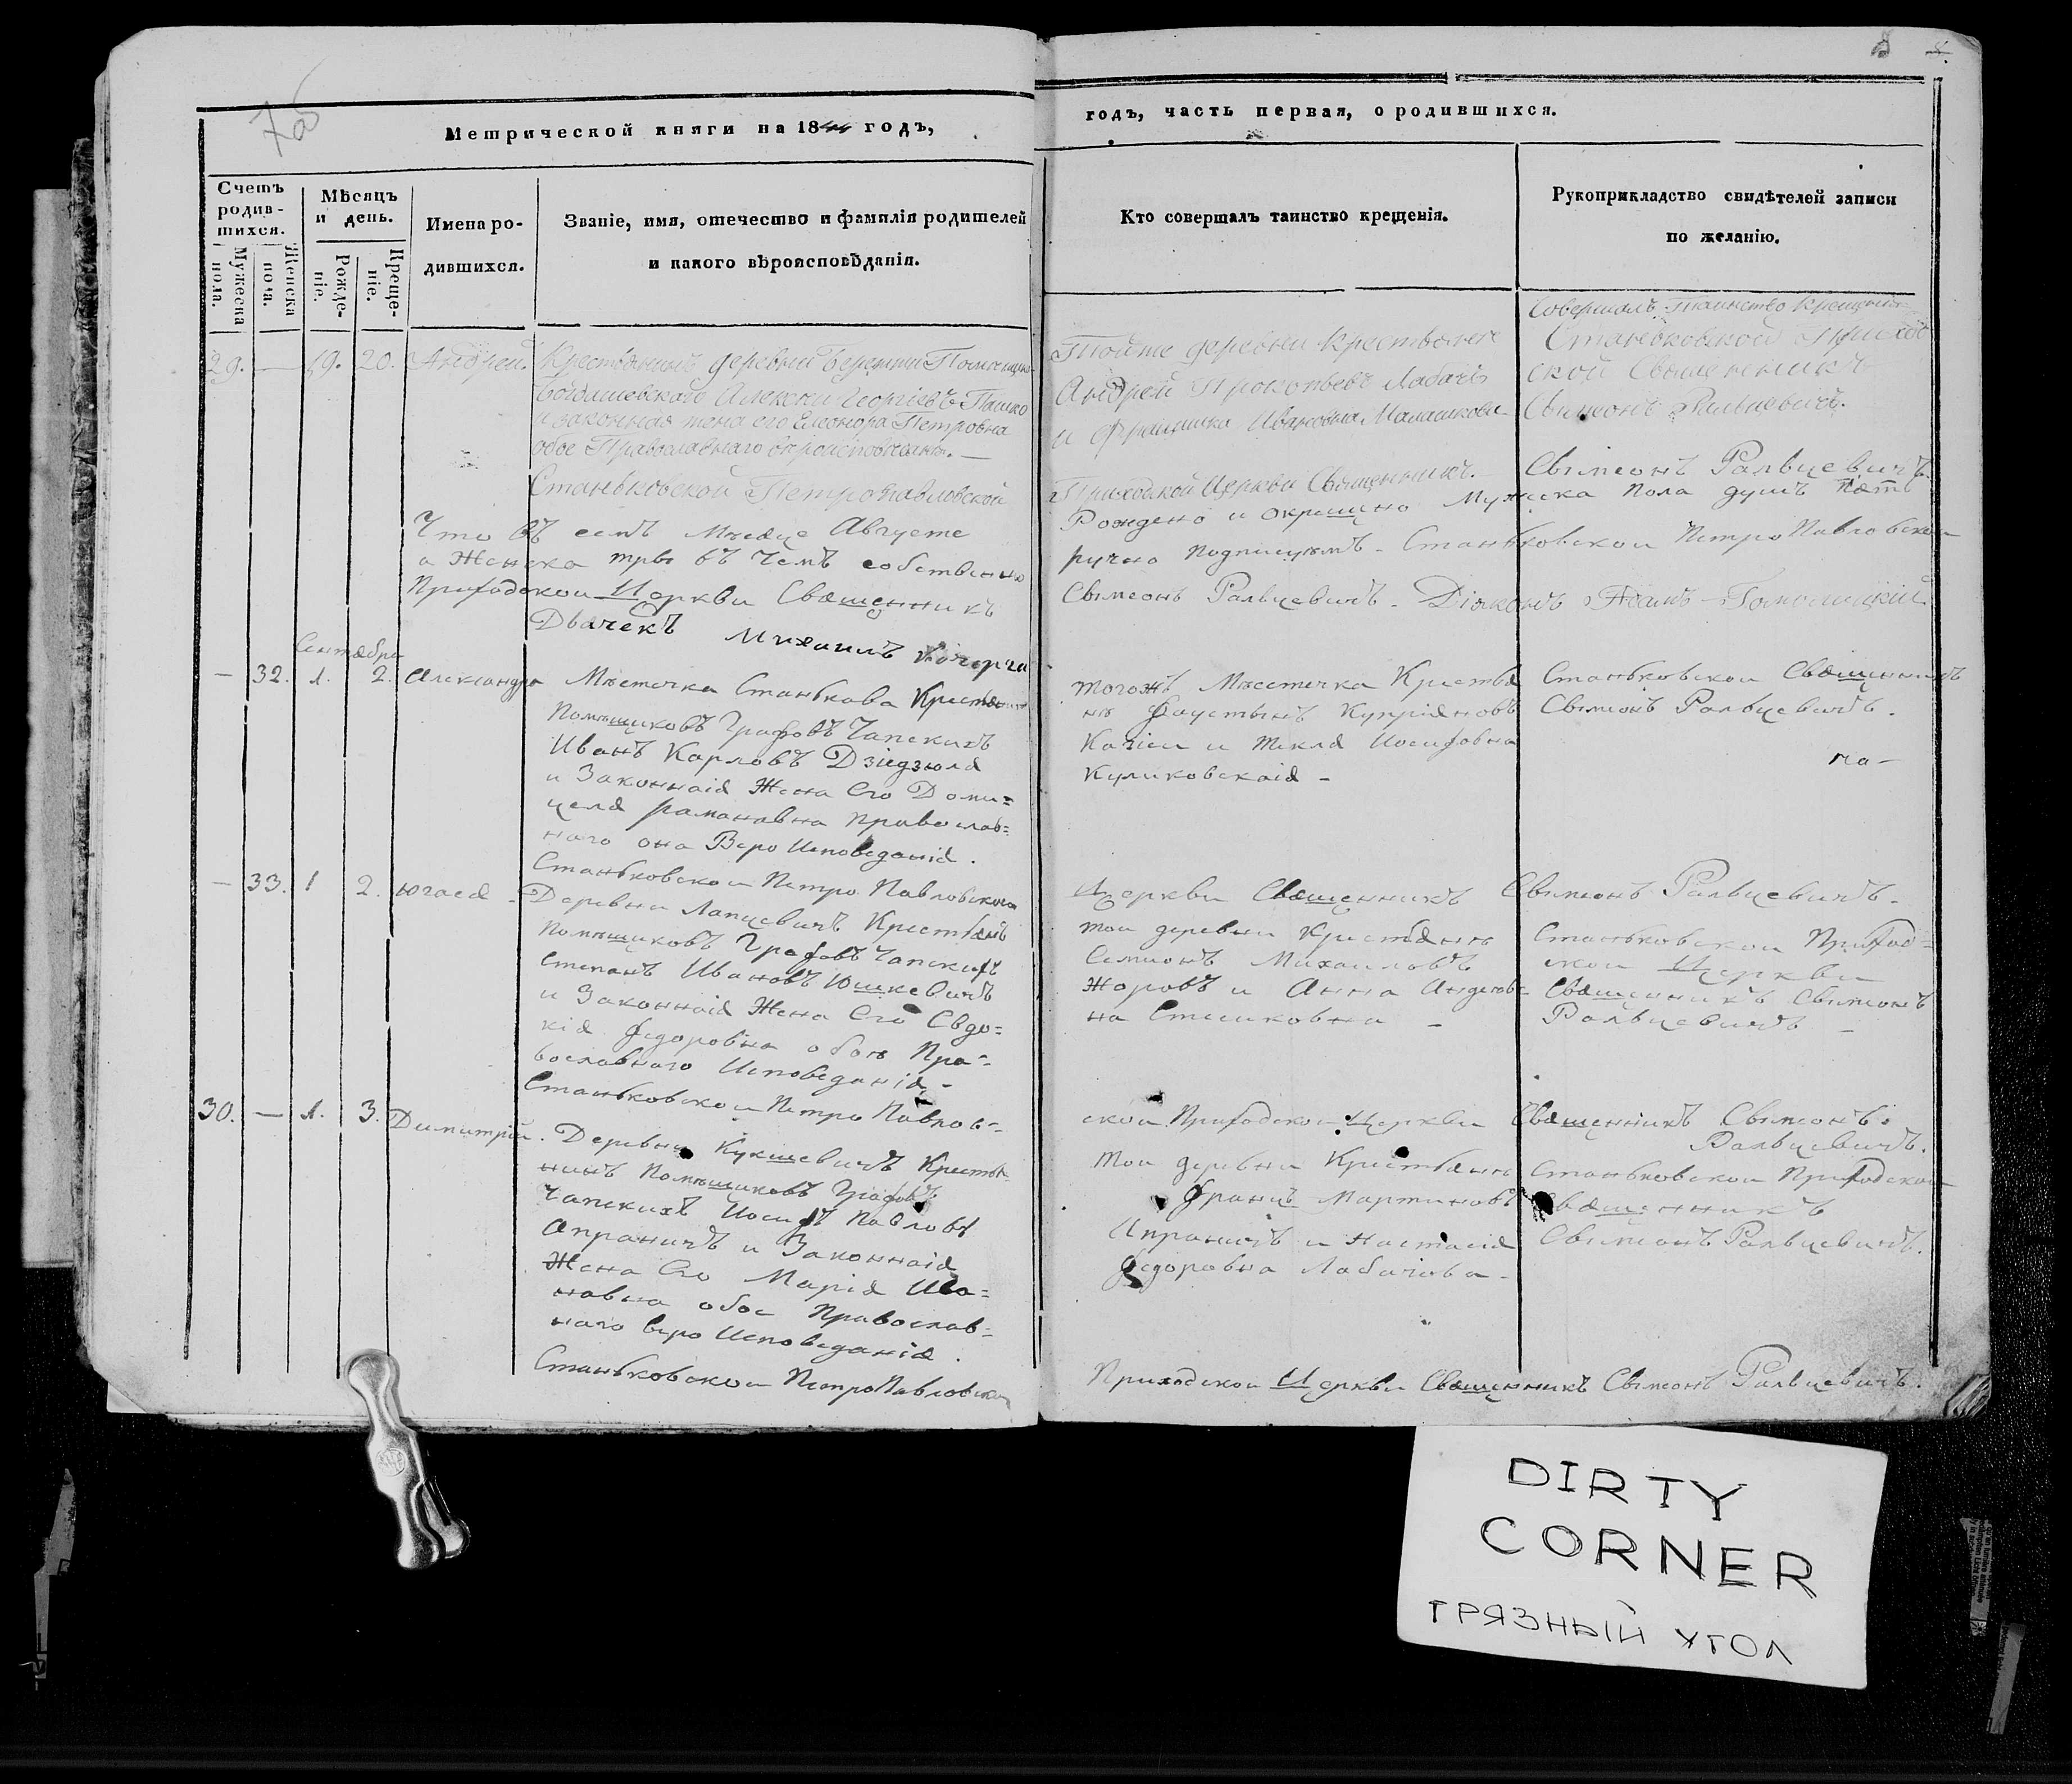 7об
8
Метрической книги на 1844 годъ,
годъ, часть первая, о родившихся.
Счетъ родив-шихся.
Мужеска пола.
Женска пола.
Мѣсяцъ и день.
Рожде-ніе.
Креще-ніе.
Имена ро-
дившихся.
Званіе, имя, отечество и фамилія родителей
и какого вѣроисповѣданія.
Кто совершалъ таинство крещенія.
Рукоприкладство свидѣтелей записи
по желанію.
29. — 19. 20. Андрей.
Крестьянинъ деревни
Богдашевскаго Алексѣй Георгіевъ Пашко
и законная жена его Елеонора Петровна
обое Православнаго вѣроисповѣданія. —
Станьковской Петропавловской
Тойже деревни крестьяне
Андрей Прокопьевъ Лабачъ
и Францишка Ивановна
Совершалъ Таинство крещенія
Станьковской Приход
ской Священникъ
Свимеонъ Ральцевичъ.
Приходской Церкви Священникъ. Свимеонъ Ральцевичъ
Что въ семъ месяце Августе
Рождено и окрещено Мужеска пола душъ пять
а Женска три въ чемъ собственно
ручно подписуемъ - Станьковскои ПетроПавловскои
Приходскои Церкви Священникъ
Свимеонъ Ральцевичъ - Діяконъ
Дьячекъ Михаилъ Кочерга
Сентября
— 32. 1. 2. Александра
Местечка Станькова Крестьянинъ
Помещиковъ Графовъ Чапскихъ
Иванъ Карловъ Дзіедзюля
и Законная Жена Его Доми=
целя рамановна Православ=
наго она Веро Исповеданія.
Станьковскои Петро Павловскои
тогожъ Месстечка Крестья
не Фаустынъ Купріяновъ
и текля Иосифовна
Куликовская -
Станьковскои Священникъ
Свимеонъ Ральцевичъ.
Церкви Священникъ Свимеонъ Ральцевичъ.
— 33. 1 2.
Деревни Лапцевичъ Крестьянъ
Помещиковъ Графовъ Чапскихъ
Степанъ Ивановъ Юшкевичъ
и Законная Жена Его Евдо=
кія Федоровна обое Пра=
вославнаго Исповеданія -
Станьковскои Петро Павлов=
тои деревни Крестьяне
Семионъ Михаиловъ
Жоровъ и Анна
на
Станьковскои Приход=
скои Церкви
Священникъ Свимеонъ
Ральцевичъ —
скои Приходскои Церкви Священникъ Свимеонъ
Ральцевичъ.
30. — 1. 3. Димитрій.
Деревни Кукшевичъ Крестья-
нинъ Помещиковъ Графовъ
Чапскихъ Иосифъ Павловъ
Апраничъ и Законная
Жена Его Марія Ива=
новна обое Православ=
наго веро Исповеданія.
Станьковскои ПетроПавловскои
Тои деревни Крестьяне
Францъ Мартиновъ
Апраничъ и Настасія
Федоровна Лабачова -
Станьковскои Приходскои
Священникъ
Свимеонъ Ральцевичъ.
Приходскои Церкви Священникъ Свимеонъ Ральцевичъ.
DIRTY
CORNER
ГРЯЗНЫЙ УГОЛ